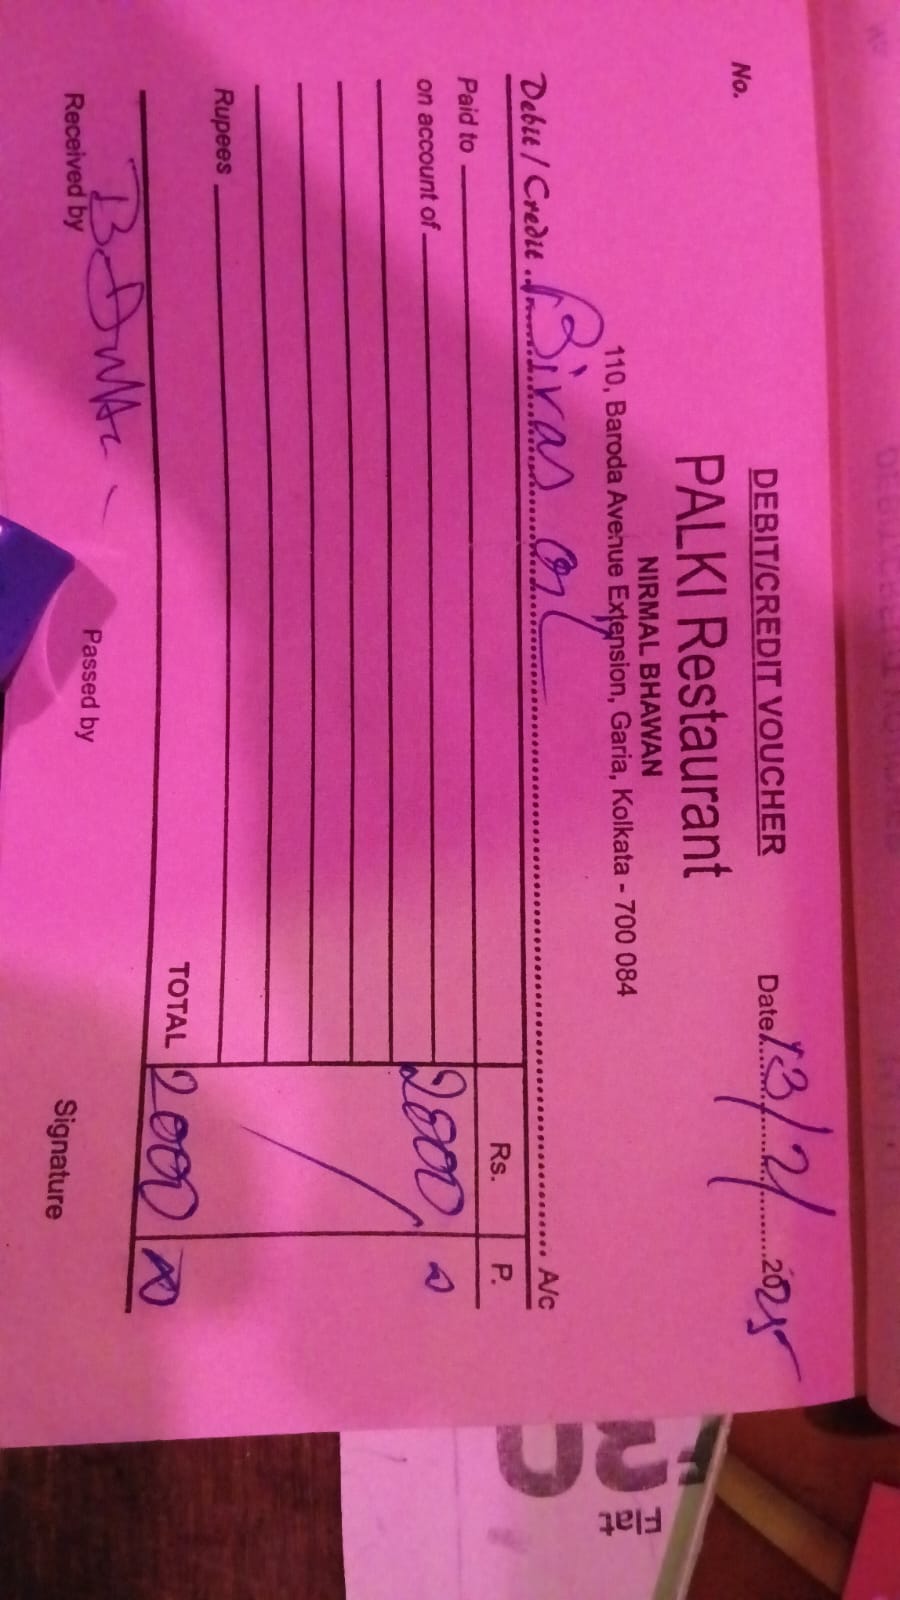 DEBIT/CREDIT VOUCHER
No.
Date 13/2/2025
PALKI Restaurant
NIRMAL BHAWAN
110, Baroda Avenue Extension, Garia, Kolkata - 700 084
Debit / Credit A/c
Rs. P.
Paid to
on account of 2000
Rupees
TOTAL 2000
Received by Passed by Signature